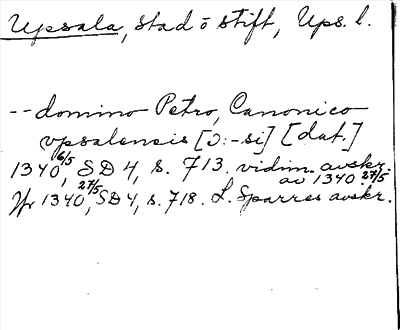 Upsala, stad o stift, Ups. l.
-- domino Petro, Canonico
vpsalensis [ɔ: -si] [dat.]
1340 6/5, SD 4, s. 713. vidim. avskr.
av 1340 27/5
Jfr 1340 27/5, SD 4, s. 718. L. Sparres avskr.